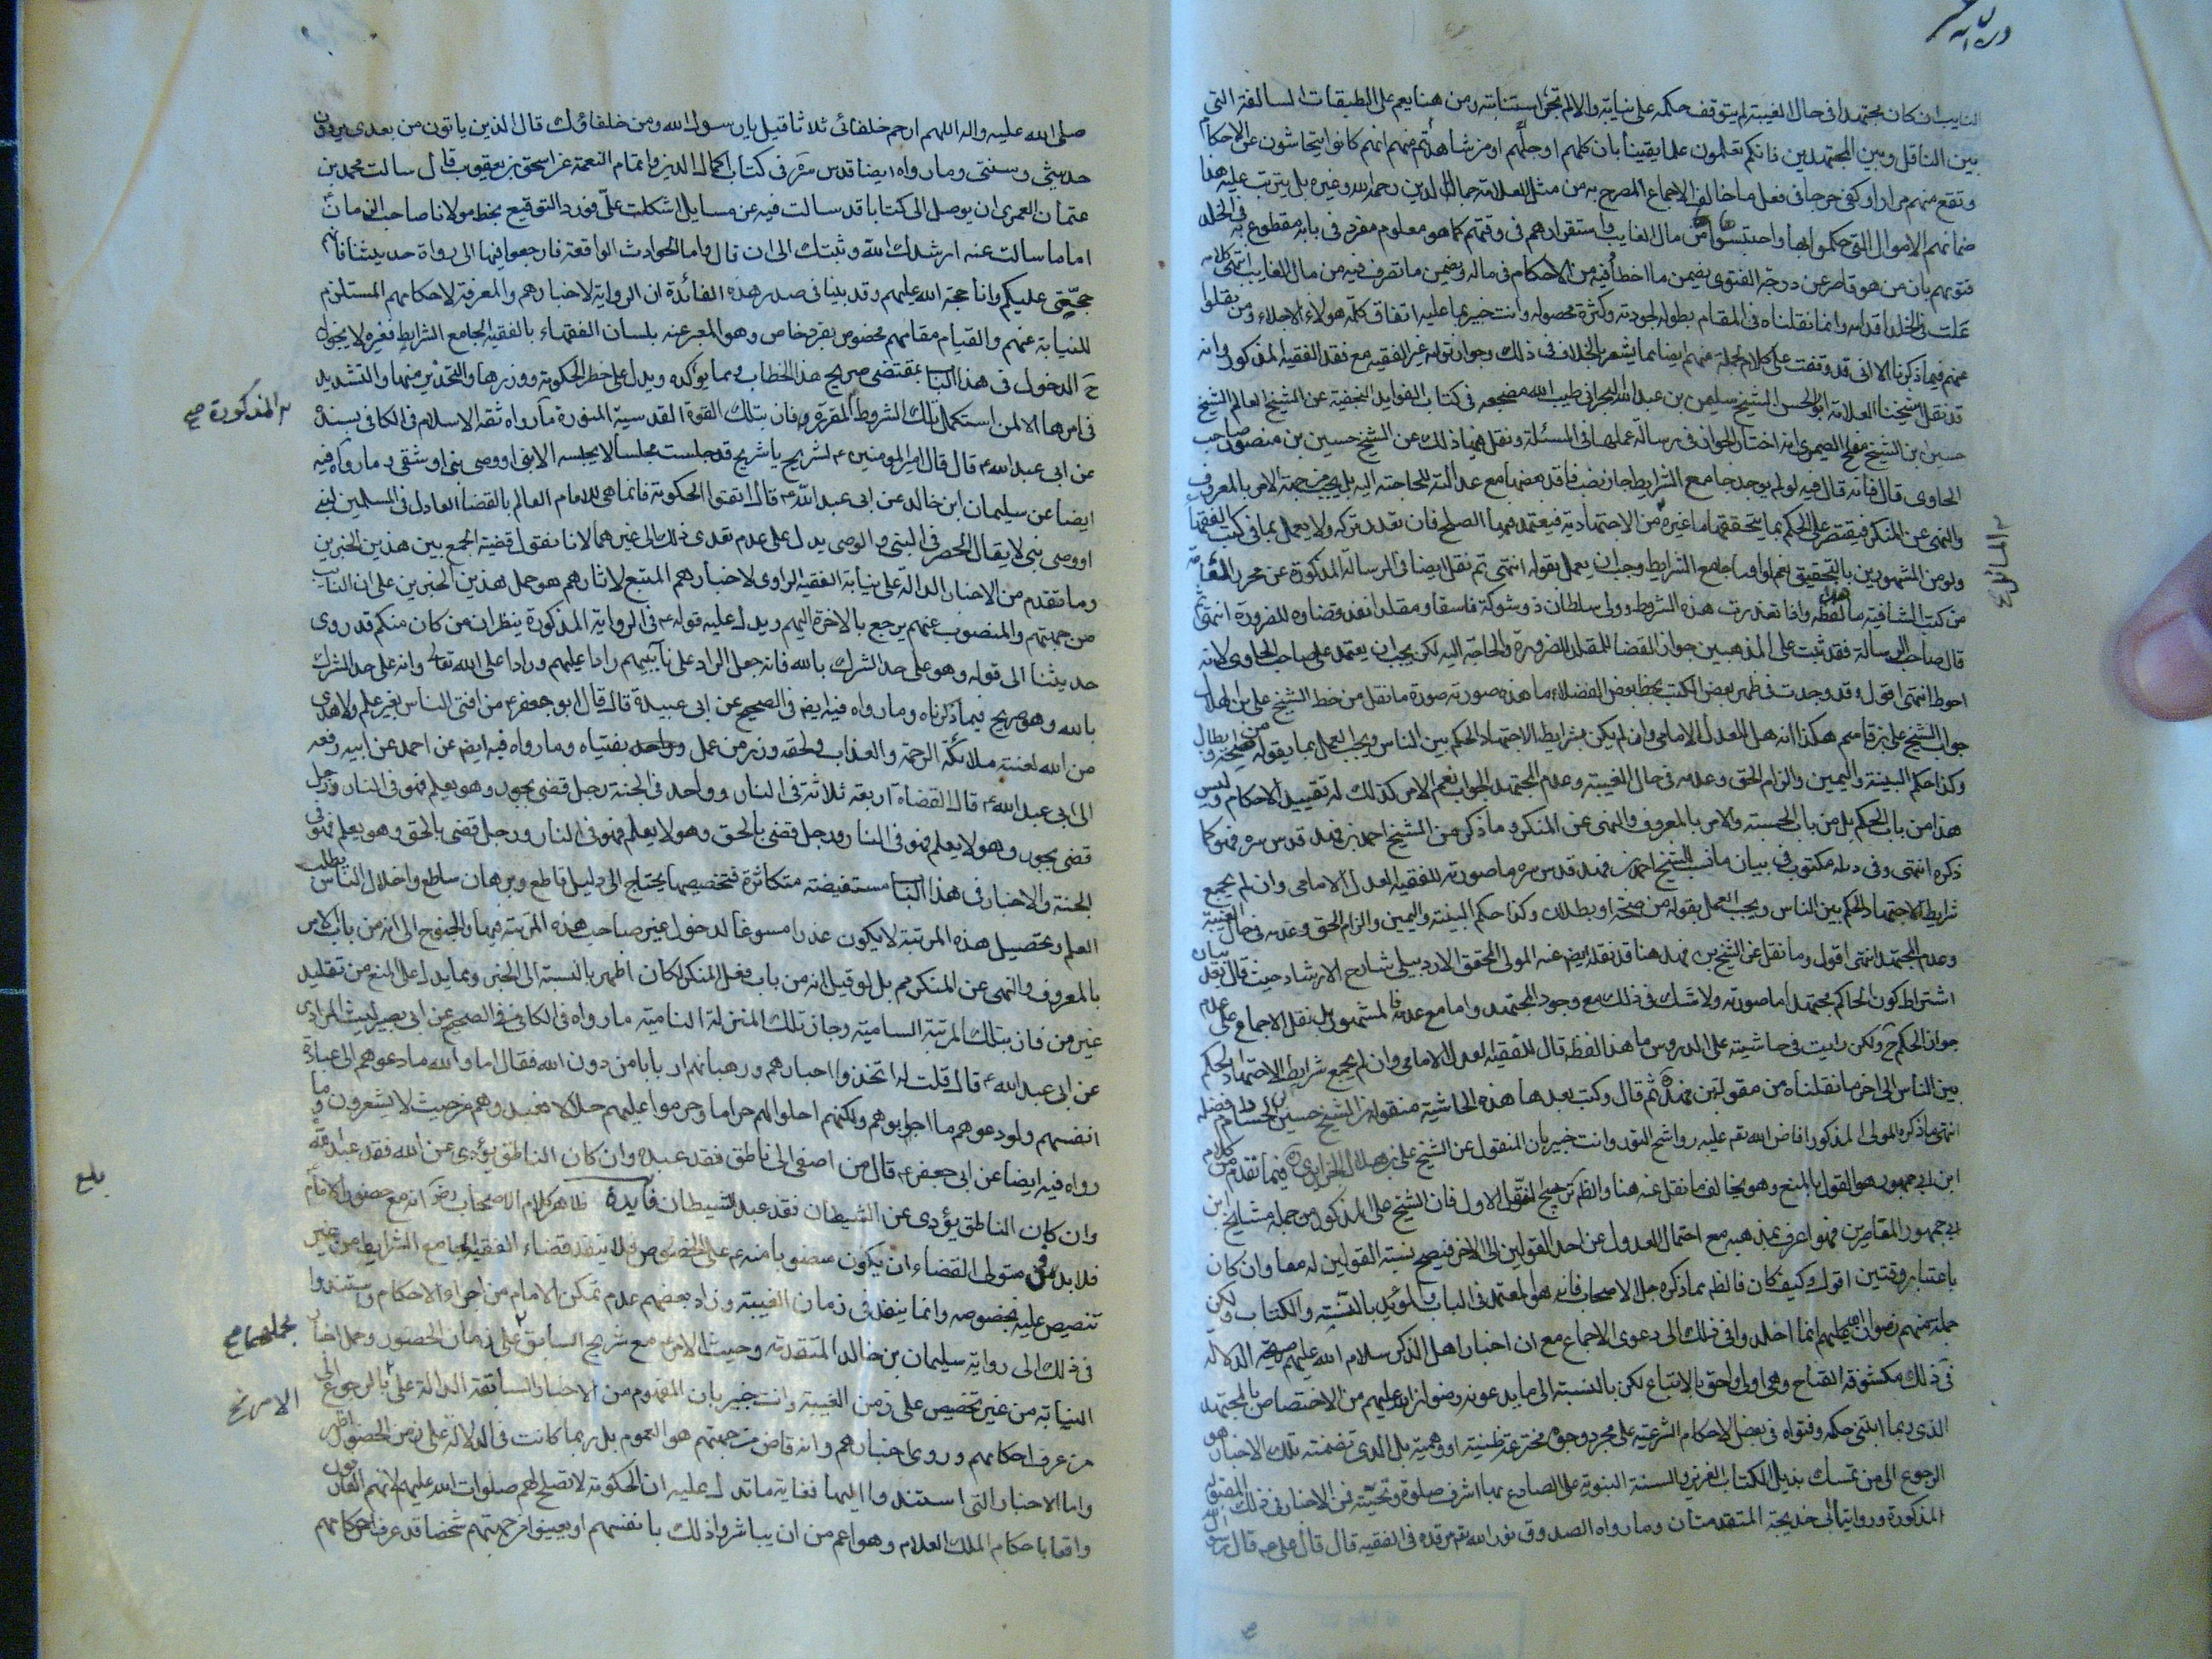 النايب ان كان مجتهدا في حال الغيبة لم يتوقف حكمه على نيابته والا لم تجز استنابته ومن هنا يعم على الطبقات السالفة التي
بين الناقل وبين المجتهدين فانكم تعلمون علما يقينا بان كلهم او جلهم او من شاهدتم منهم انهم كانوا يتحاشون عن الاحكام
وتقع منهم مرارا وكفى خرجا في فعل ما خالف الاجماع المصرح به من مثل العلامة جمال الدين رحمه الله وغيره بل يترتب عليه هنا
ضمانهم الاموال التي حكموا بها واحتبسوا من مال الغايب واستقرارهم في وقتهم كما هو معلوم مفرد في بابه مقطوع به في الخلد
فتوتهم بان من هو قاصر عن درجة الفتوى يضمن ما اخطأ فيه من الاحكام في ماله ويضمن ما تصرف فيه من مال الغايب انتهى كلامه
علت في الخلد اقدامه وانما نقلناه في المقام بطوله لجودته وكثرة محصوله وانت خبير بما عليه اتفاق كلمة هولاء الاجلاء ومن نقلوا
عنهم فيما ذكرنا الا اني قد وقفت على كلام لجملة منهم ايضا مما يشعر بالخلاف في ذلك وجواز تولية غير الفقيه مع فقد الفقيه المذكور وانه
قد نقل شيخنا العلامة ابو الحسن الشيخ سليمن بن عبد الله البحراني طيب الله مضجعه في كتاب الفوايد النجفية عن الشيخ العالم الشيخ
حسين ابن الشيخ مفلح الصيمري انه اختار الجواز في رسالة عملها في المسئلة ونقل فيها ذلك عن الشيخ حسين بن منصور صاحب
الحاوي قال فانه قال فيه لو لم يوجد جامع الشرايط جاز نصب فاقد بعضها مع عدالته للحاجة اليه بل يجب من جهة الامر بالمعروف
والنهي عن المنكر فيقتصر على الحكم بما يتحققه اما غيره من الاجتهادية فيعتمد فيها الصلح فان تعذر تركه ولا يعمل بما في كتب الفقهاء
ولو من المشهورين بالتحقيق نعم لو افتا جامع الشرايط وجب ان يعمل بقوله انتهى ثم نقل ايضا في الرسالة المذكورة عن محرر
من كتب الشافية ما هذا لفظه واذا تعذرت هذه الشروط وولى سلطان ذو شوكة فاسقا ومقلدا نفذ قضاوه للضرورة انتهى ثم
قال صاحب الرسالة فقد ثبت على المذهبين جواز القضا للمقلد للضرورة والحاجة اليه لكن يجب ان يعتمد على صاحب الحاوي لانه
احوط انتهى اقول وقد وجدت في ظهر بعض الكتب بخط بعض الفضلاء ما هذه صورته صورة ما نقل من خط الشيخ علي بن هلال
جواب الشيخ علي بن قاسم هكذا انه هل للعدل الامامي وان لم يكن بشرايط الاجتهاد الحكم بين الناس ويجب العمل بما يقوله من صحة وابطال
وكذا حكم البينة واليمين والزام الحق وعدمه في حال الغيبة وعدم المجتهد الجواب نعم الامر كذلك له تقييد الاحكام وليس
هذا من باب الحكم بل من باب الحسبة والامر بالمعروف والنهي عن المنكر وما ذكر من الشيخ احمد بن فهد قدس سره فهو كما
ذكره انتهى وفي ذيله مكتوب في بيان ما نسب للشيخ احمد بن فهد قدس سره ما صورته للفقيه العدل الامامي وان لم يجمع
شرايط الاجتهاد الحكم بين الناس ويجب العمل بقوله من صحة او بطلان وكذا حكم البينة واليمين والزام الحق وعدمه في حال الغيبة
وعدم المجتهد انتهى اقول وما نقل عن الشيخ بن فهد هنا قد نقله ايضا عنه المولى المحقق الاردبيلي شارح الارشاد حيث قال بعد بيان
اشتراط كون الحاكم مجتهدا ما صورته ولا شك في ذلك مع وجود المجتهد واما مع عدمه فالمشهور بل نقل الاجماع على عدم
جواز الحكم ح ولكن رايت في حاشيته على الدروس ما هذا لفظه قال للفقيه العدل الامامي وان لم يجمع شرايط الاجتهاد الحكم
بين الناس الى اخر ما نقلناه من مقول بن فهد ثم قال وكتب بعدها هذه الحاشية منقولة من الشيخ حسين بن الحسام دام فضله
انتهى ما ذكره المولى المذكور افاض الله تعم عليه رواشح النور وانت خبير بان المنقول عن الشيخ علي بن هلال الجزايري فيما تقدم من كلام
ابن ابي جمهور هو القول بالمنع وهو يخالف ما نقل عنه هنا والظاهر ترجيح النقل الاول فان الشيخ علي المذكور من جملة مشايخ ابن
ابي جمهور المعاصرين فهو اعرف بمذهبه مع احتمال العدول عن احد القولين الى الاخر فيصح نسبة القولين له معا وان كان
باعتبار وقتين اقول وكيف كان فالظم بما ذكره جل الاصحاب فانه هو المعتمد في الباب والمؤيد بالسنة والكتاب ولكن
جملة منهم رضوان الله عليهم انما اخلدوا في ذلك الى دعوى الاجماع مع ان اخبار اهل الذكر سلام الله عليهم صريحة الدلالة
في ذلك مكشوفة القناع وهي اولى واحق بالاتباع لكن بالنسبة الى ما يدعونه رضوان الله عليهم من الاختصاص بالمجتهد
الذي ربما ابتنى حكمه وفتواه في بعض الاحكام الشرعية على مجرد وجوه مخترعة ظنية او وهمية بل الذي تضمنته تلك الاخبار هو
الرجوع الى من تمسك بذيل الكتاب العزيز والسنة النبوية على الصادع بها اشرف صلوة وتحية فمن الاخبار في ذلك المقبولة
المذكورة ورواية ابي خديجة المتقدمتان وما رواه الصدوق نور الله تعم مرقده في الفقيه قال قال علي ع قال رسول الله
صلى الله عليه واله اللهم ارحم خلفائي ثلاثا قيل يا رسول الله ومن خلفاؤك قال الذين ياتون من بعدي يروون
حديثي وسنتي وما رواه ايضا قدس سره في كتاب اكمال الدين واتمام النعمة عن اسحق بن يعقوب قال سالت محمد بن
عثمان العمري ان يوصل الي كتابا قد سالت فيه عن مسايل اشكلت علي فورد التوقيع بخط مولانا صاحب الزمان
اما ما سالت عنه ارشدك الله وثبتك الى ان قال واما الحوادث الواقعة فارجعوا فيها الى رواة حديثنا فانهم
حجتي عليكم وانا حجة الله عليهم وقد بينا في صدر هذه الفائدة ان الرواية لاخبارهم والمعرفة لاحكامهم المستلزم
للنيابة عنهم والقيام مقامهم مخصوص بفرد خاص وهو المعبر عنه بلسان الفقهاء بالفقيه الجامع الشرايط فغيره لا يجوز له
ح الدخول في هذا الباب بمقتضى صريح هذا الخطاب ومما يؤكده ويدل على خطر الحكومة ووزرها والتحذير منها والتشديد
في امرها الا لمن استكمل تلك الشروط المقررة وفاز بتلك القوة القدسية المنورة ما رواه ثقة الاسلام في الكافي بسنده
المذكورة صح
عن ابي عبد الله ع قال قال امير المؤمنين ع لشريح يا شريح قد جلست مجلسا لا يجلسه الا نبي او وصي نبي او شقي وما رواه فيه
ايضا عن سليمان ابن خالد عن ابي عبد الله ع قال اتقوا الحكومة فانما هي للامام العالم بالقضا العادل في المسلمين لنبي
او وصي نبي لا يقال الحصر في النبي والوصي يدل على عدم تعدي ذلك الى غيرهما لانا نقول قضية الجمع بين هذين الخبرين
وما تقدم من الاخبار الدالة على نيابة الفقيه الراوي لاخبارهم المتبع لاثارهم هو حمل هذين الخبرين على ان النائب
من جهتهم والمنصوب عنهم يرجع بالاخرة اليهم ويدل عليه قوله ع في الرواية المذكورة ينظران من كان منكم قد روى
حديثنا الى قوله وهو على حد الشرك بالله فانه جعل الراد على نائبهم رادا عليهم ورادا على الله تعالى وانه على حد الشرك
بالله وهو صريح فيما ذكرناه وما رواه فيه ايضا في الصحيح عن ابي عبيدة قال قال ابو جعفر ع من افتى الناس بغير علم ولا هدى
من الله لعنته ملائكة الرحمة والعذاب ولحقه وزر من عمل بفتياه وما رواه فيه ايضا عن احمد عن ابيه رفعه
الى ابي عبد الله ع قال القضاة اربعة ثلاثة في النار وواحد في الجنة رجل قضى بجور وهو يعلم فهو في النار ورجل
قضى بجور وهو لا يعلم فهو في النار ورجل قضى بالحق وهو لا يعلم فهو في النار ورجل قضى بالحق وهو يعلم فهو في
الجنة والاخبار في هذا الباب مستفيضة متكاثرة فتخصيصها يحتاج الى دليل قاطع وبرهان ساطع واخلال الناس بطلب
العلم وتحصيل هذه المرتبة لا يكون عذرا مسوغا لدخول غير صاحب هذه المرتبة فيها والجنوح الى انه من باب الامر
بالمعروف والنهي عن المنكر مم بل لو قيل انه من باب فعل المنكر لكان اظهر بالنسبة الى الخبر ومما يدل على المنع من تقليد
غير من فاز بتلك المرتبة السامية وحاز تلك المنزلة النامية ما رواه في الكافي في الصحيح عن ابي بصير ليث المرادي
عن ابي عبد الله ع قال قلت له اتخذوا احبارهم ورهبانهم اربابا من دون الله فقال اما والله ما دعوهم الى عبادة
انفسهم ولو دعوهم ما اجابوهم ولكنهم احلوا لهم حراما وحرموا عليهم حلالا فعبدوهم من حيث لا يشعرون وما
رواه فيه ايضا عن ابي جعفر ع قال من اصغى الى ناطق فقد عبده وان كان الناطق يؤدي عن الله فقد عبد الله
بلغ
وان كان الناطق يؤدي عن الشيطان فقد عبد الشيطان فايدة ظاهر كلام الاصحاب رضو انه مع حضور الامام
فلا بد في متولي القضاء ان يكون منصوبا منه ع على الخصوص فلا ينفذ قضاء الفقيه الجامع الشرايط من غير
تنصيص عليه بخصوصه وانما ينفذ في زمان الغيبة وزاد بعضهم عدم تمكن الامام من اجراء الاحكام واستندوا
في ذلك الى رواية سليمان بن خالد المتقدمة وحديث الامير ع مع شريح السابق على زمان الحضور وحمل اخبار
بحملهما صح
النيابة من غير تخصيص على زمن الغيبة وانت خبير بان المفهوم من الاخبار السابقة الدالة على بالرجوع الى
الامر صح
من عرف احكامهم وروى اخبارهم وانه قاض من جهتهم هو العموم بل ربما كانت في الدلالة على زمن الحضور اظهر
واما الاخبار التي استندوا اليها فغاية ما تدل عليه ان الحكومة لا تصلح الا لهم صلوات الله عليهم لانهم القائمون
واقعا باحكام الملك العلام وهو اعم من ان يباشروا ذلك بانفسهم او يعينوا من جهتهم شخصا قد عرف احكامهم